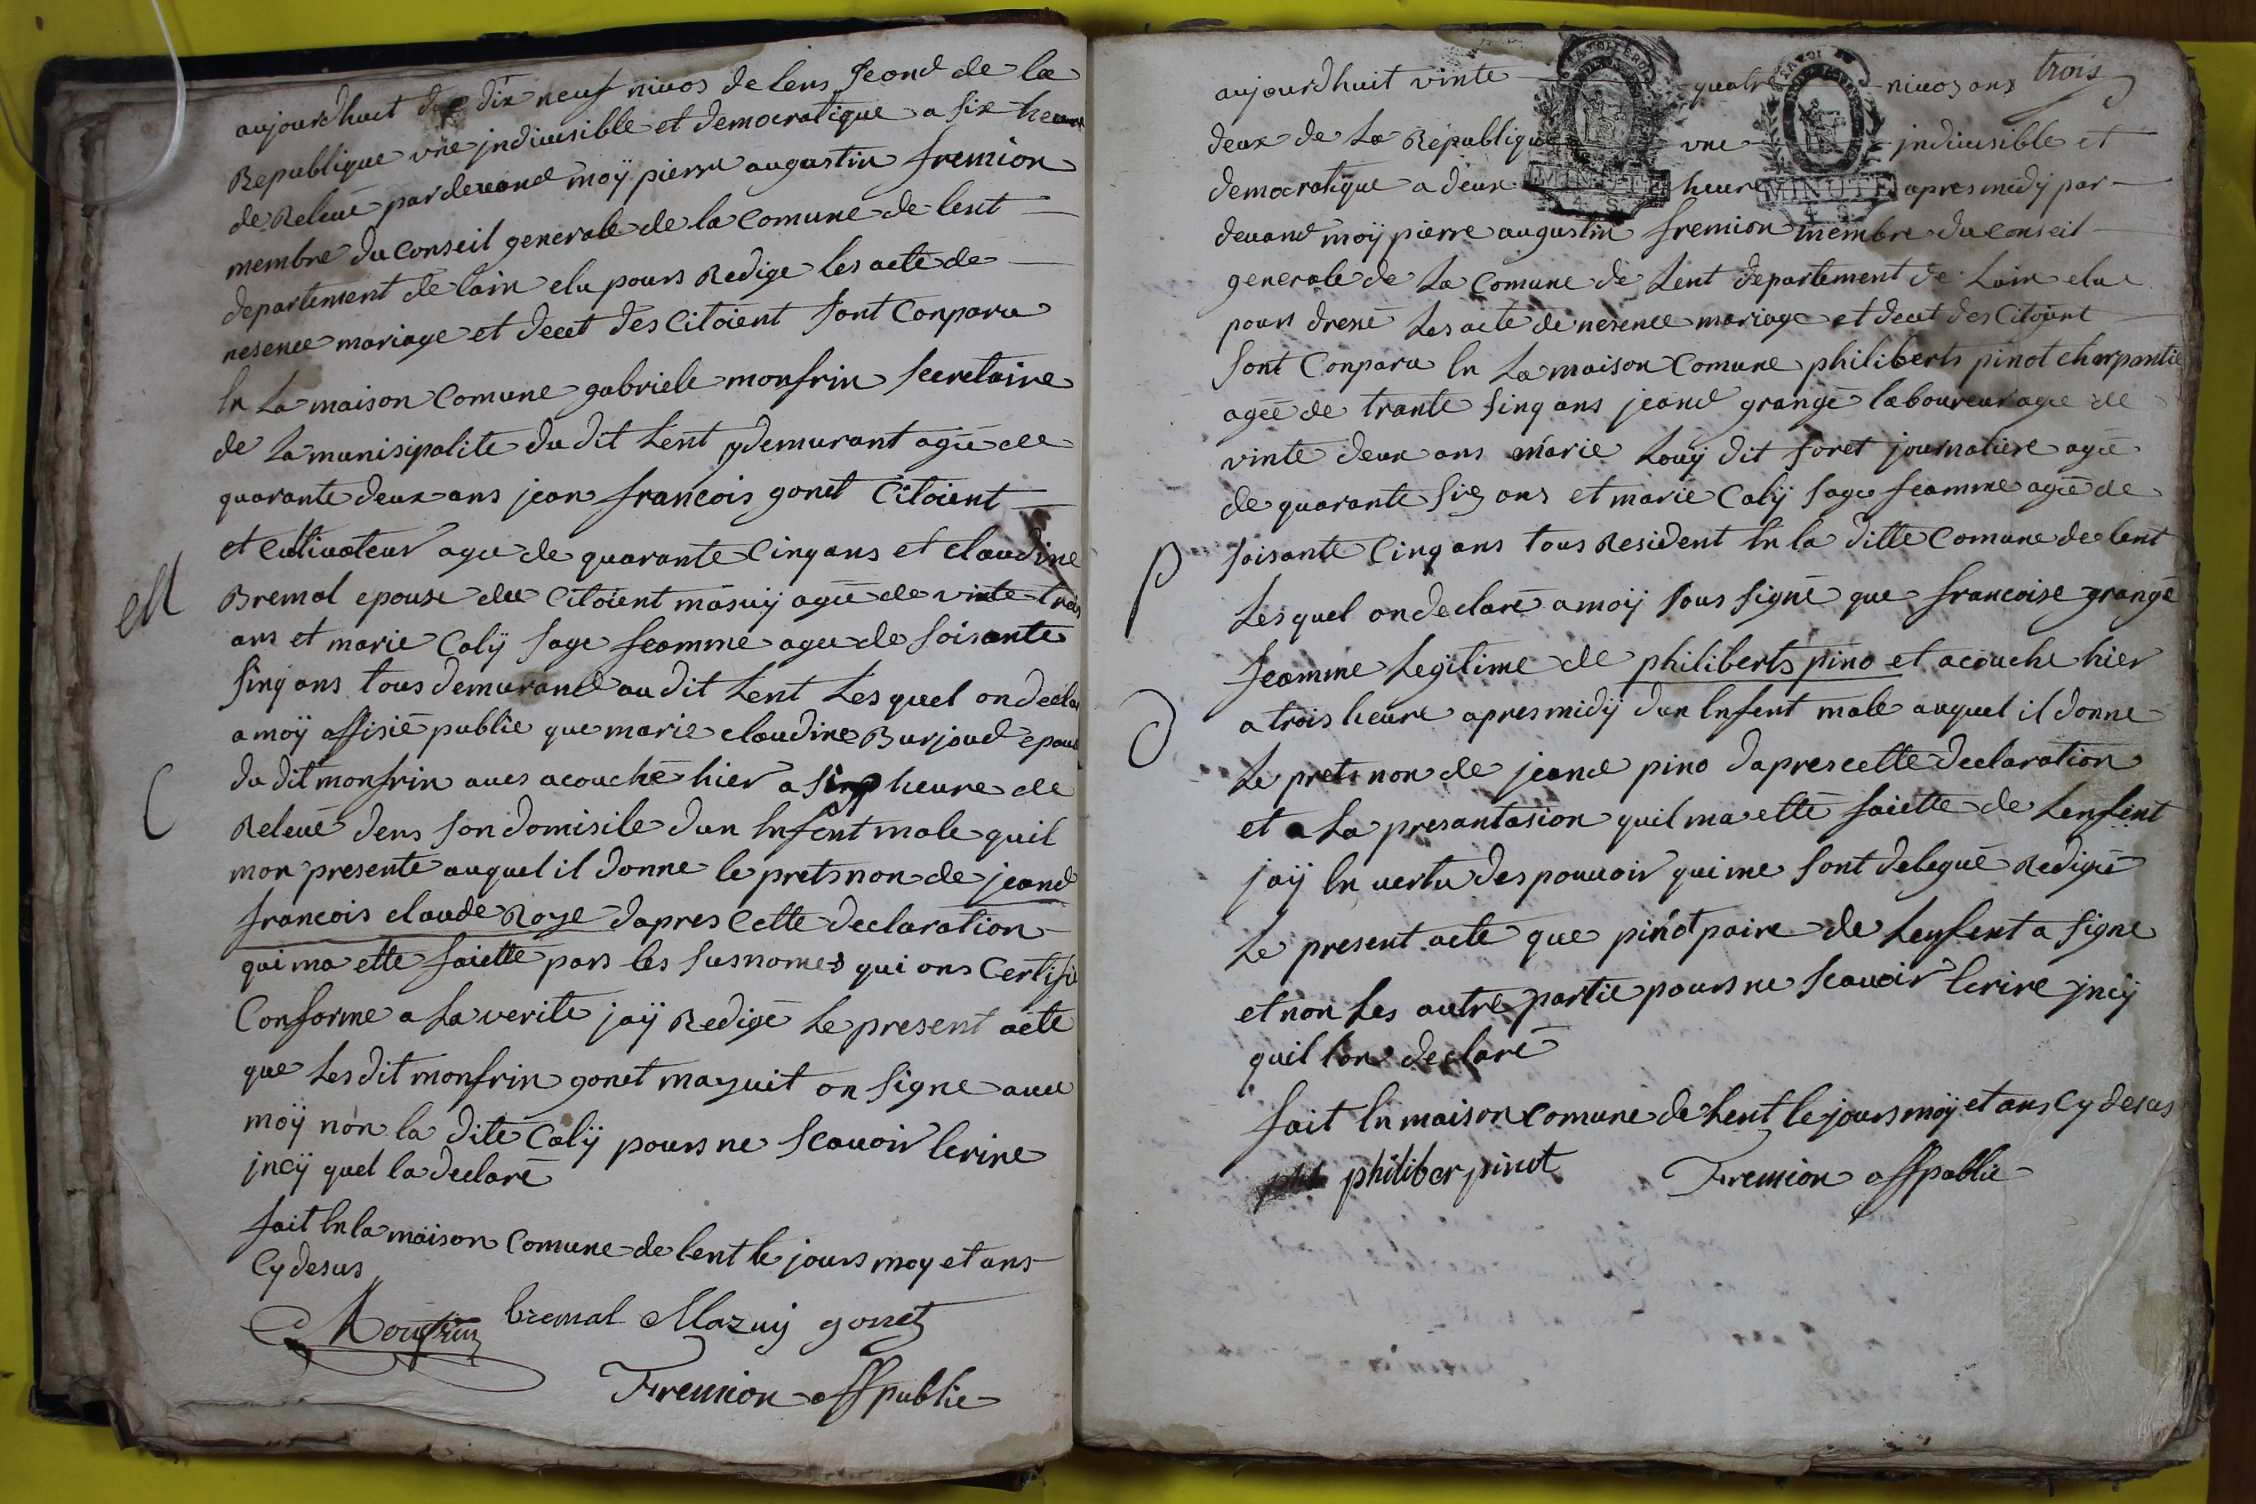 aujourdhuit dix neuf nivos de lens second de la
Republique vne jndiuisible et democratique a six heure
de Releué pardeuand moÿ pierre augustin fremion
membre du conseil generale de la comune de lent
departement de lain elu pours Redige les acte de
nesence mariage et decet des Citoient sont Conparu
en La maison Comune gabriele monfrin secretaire
de La munisipalite du dit Lent y demurant agée de
quarante deux ans jean francois gonet Citoient
et cultivateur agee de quarante Cinq ans et claudine
Bremal epouse du Citoient masuÿ agée de vinte trois
ans et marie Calÿ sage feamme agee de soisante
sinq ans tous demurand au dit Lent Lesquel on declare
a moÿ offisié public que marie claudine Burjoud epouse
du dit monfrin aues acouché hier a sinq heure de
Releué dens son domisile dun enfent male quil
mon presente auquel il donne le prets non de jeand
francois claude Roze dapres Cette declaration
qui ma ette faiette pars les susnomes qui ons Certifie
Conforme a La verite jaÿ Redigé Le present acte
que Lesdit monfrin gonet mazuit on signe auec
moÿ non la dite Calÿ pours ne scauoir ecrire
jncÿ quel la declaré
fait en la maison Comune de lent le jours moy et ans
Cy desus
Monfrin bremal Mazuy gonet
Fremion off public
M
C
trois
aujourdhuit vinte quatre nivoz ans
deux de La Republique vne jndiuisible et
democratique a deux heure apres midÿ par
deuand moÿ pierre augustin fremion membre du conseil
generale de La Comune de Lent departement de Lain elue
pours dresné Les acte de nesence mariage et decet des Citoient
sont Conparu en La maison Comune philiberts pinot charpantie
agée de trante sinq ans jeand grangé laboureur agee de
vinte deux ans marie Louÿ dit foret journaliere agée
de quarante six ans et marie Calÿ sage feamme agée de
soisante Cinq ans tous Resident en la ditte Comune de lent
Lesquel on declaré a moÿ sous signé que francoise grangé
feamme Legitime de philiberts pino et acouche hier
a trois heure apres midÿ dun enfent male auquel il donne
Le prets non de jeand pino dapres cette declaration
et a La presantasion quil ma etté faiette de Lenfent
jaÿ en vertu des pouuoir qui me sont delegué Redigé
Le present acte que pinot paire de Lenfent a signe
et non Les autre partie pours ne scauoir ecrire jncÿ
quil lon declaré
fait en maison Comune de Lent le jours moÿ et ans Cy desus
philiber pinot Fremion off public
P
J
MINUTE
4. S.
MINUTE
4. S.